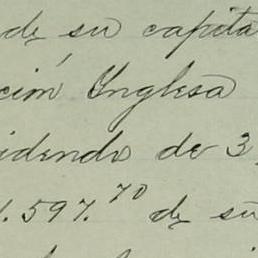 de su capita
ción Inglesa
idendo de 3
1.597.70 de su